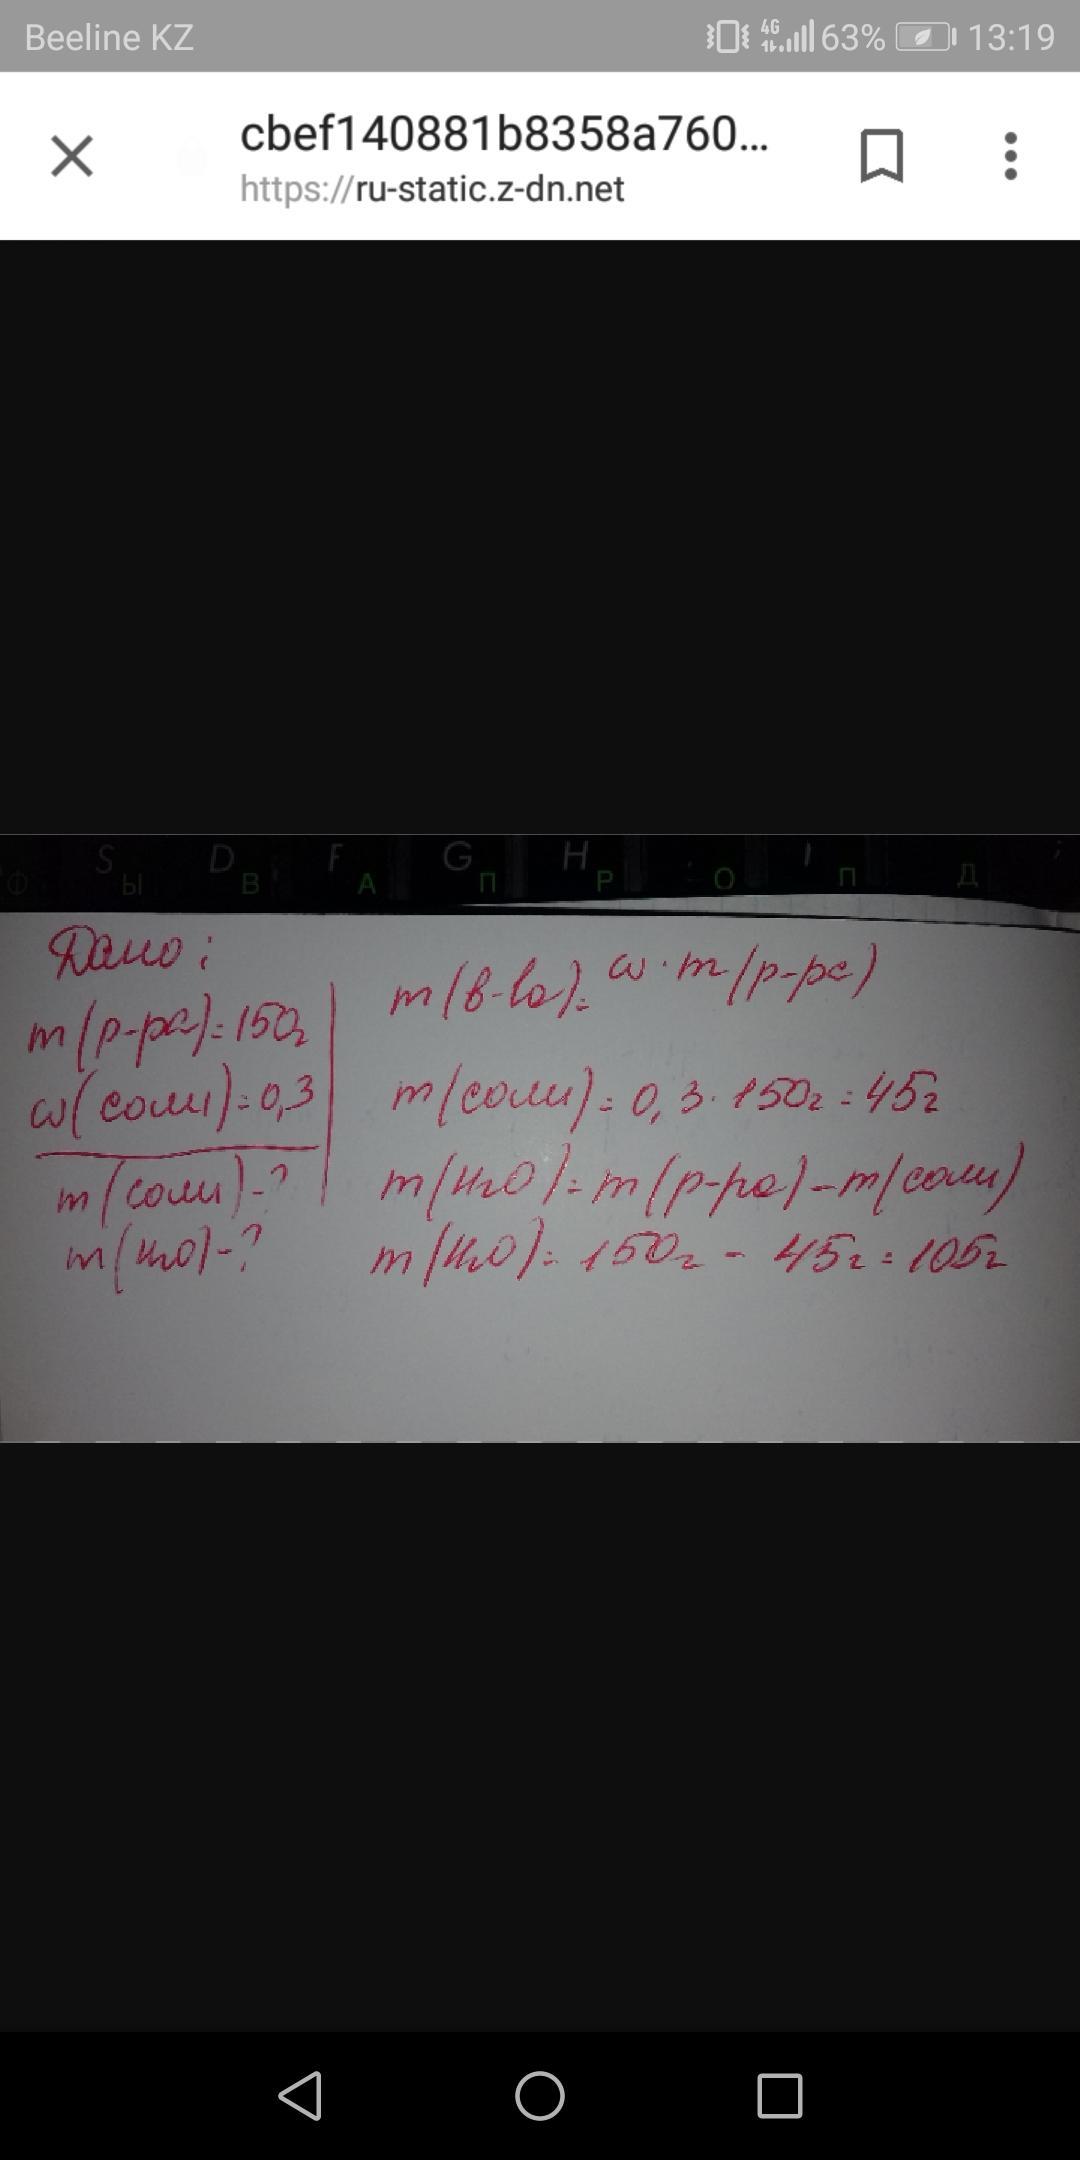 Beeline KZ
4G
63%
13:19
cbef140881b8358a760...
https://ru-static.z-dn.net
S D F G H
Ф Ы В А П Р О П Д
Дано:
m(р-ра)=150г
ω(соли)=0,3
m(соли)-?
m(H2O)-?
m(в-ва)=ω·m(р-ра)
m(соли)=0,3·150г=45г
m(H2O)=m(р-ра)-m(соли)
m(H2O)=150г-45г=105г